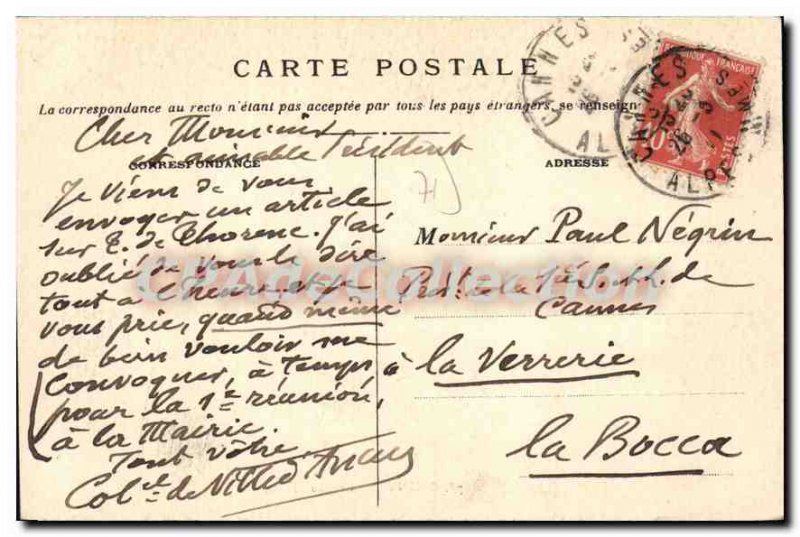 CARTE POSTALE
La correspondance au recto n'étant pas acceptée par tous les pays étrangers, se renseigne
CORRESPONDANCE
ADRESSE
Cher Monsieur
et aimable Président
Je viens de vous
envoyer un article
sur T. de Thorenc. J'ai
oublié de vous le dire
tout à l'heure, et je
vous prie, quand même
de bien vouloir me
convoquer, à temps
pour la 1re réunion,
à la Mairie.
Tout vôtre
Col. de Ville d'Avray
71
Monsieur Paul Négrin
Prést de la Sté
de
Cannes
à la Verrerie
La Bocca
CANNES
ALP
CANNES
26 -3
11
ALPES
RÉPUBLIQUE FRANÇAISE
POSTES
10
CPAdeCollection